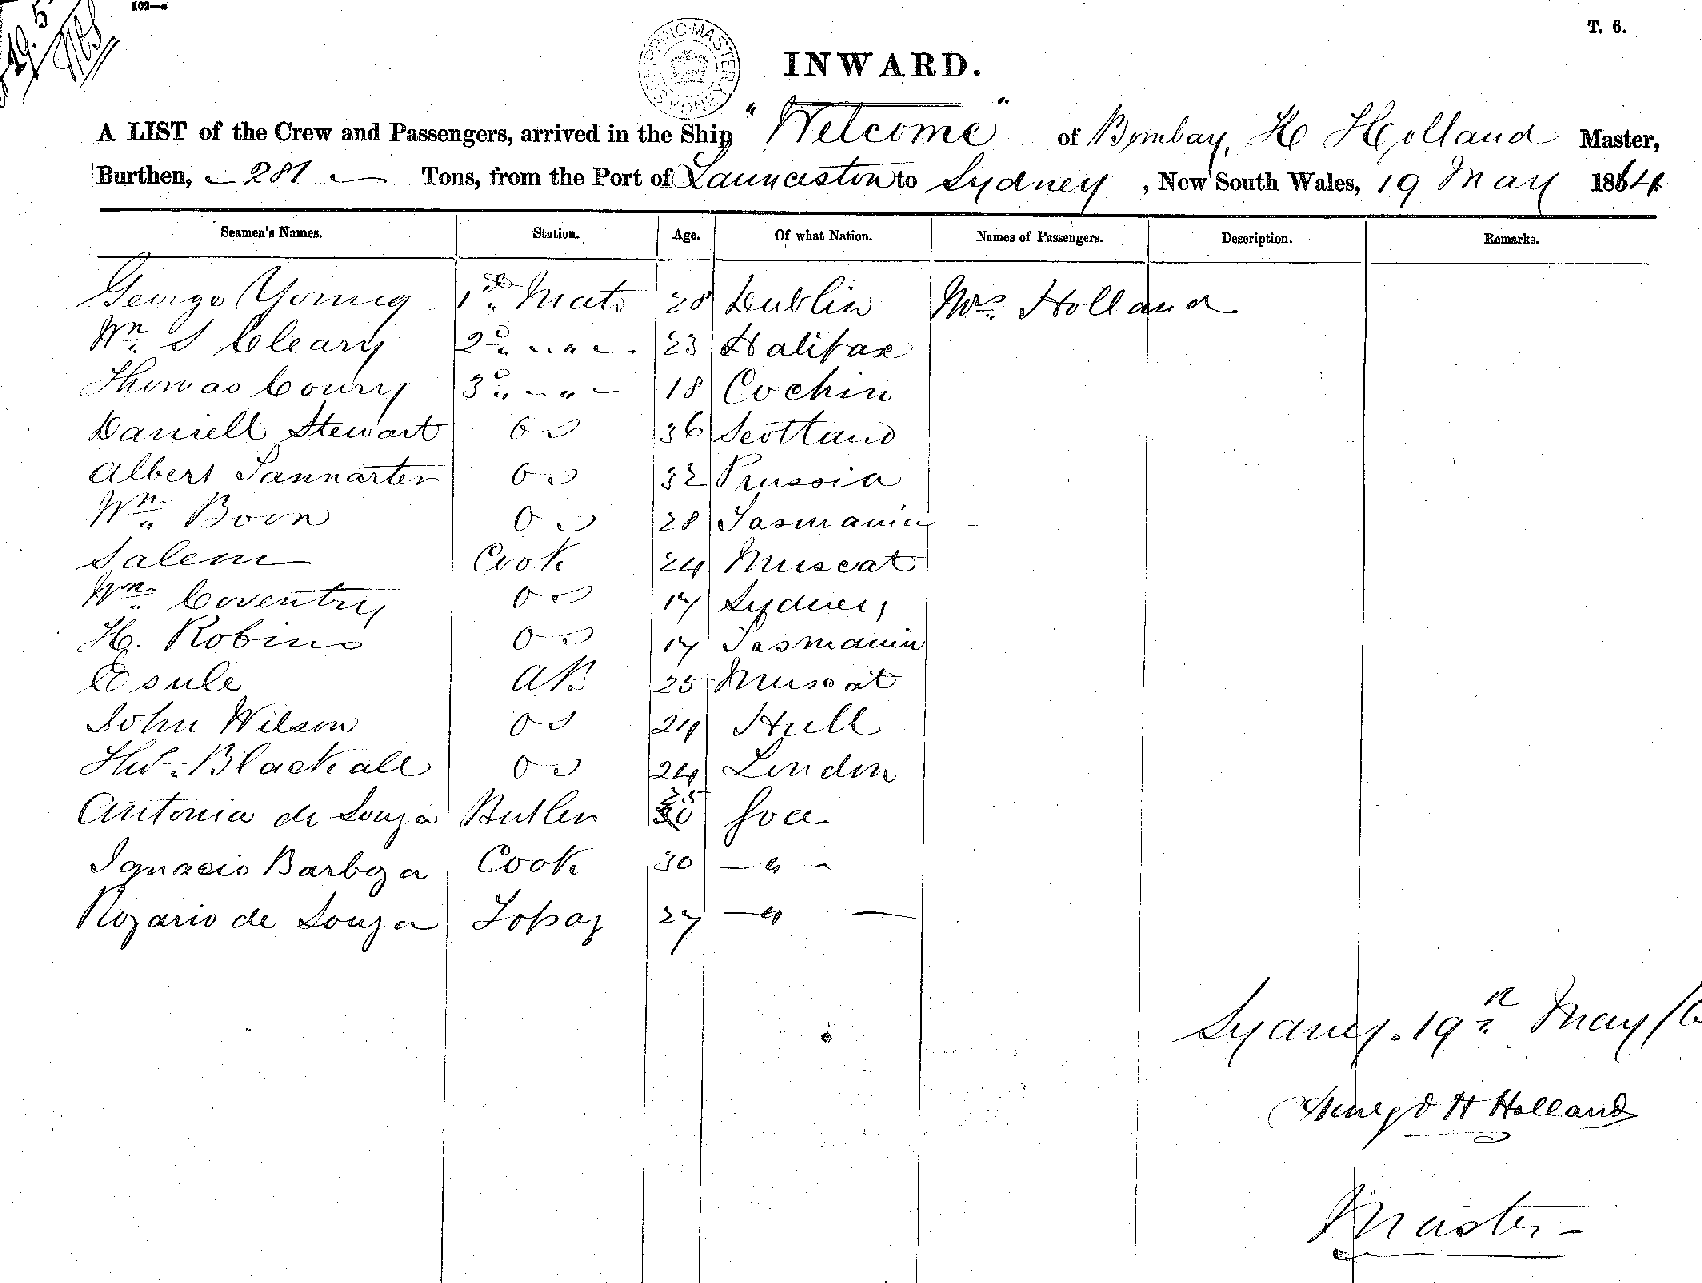 T. 6.
INWARD.
A LIST of the Crew and Passengers, arrived in the Ship "Welcome" of Bombay, H Holland Master,
Burthen, 281 Tons, from the Port of Launceston to Sydney, New South Wales, 19 May 1864
Seamen's Names. Station. Age. Of what Nation. Names of Passengers. Description. Remarks.
George Young 1st Mate 28 Dublin Mrs. Holland
Wm. S Cleary 2d „ — „ — 23 Halifax
Thomas Coury 3d „ — „ — 18 Cochin
Daniell Stewart OS 36 Scotland
Albert Tannarter OS 32 Prussia
Wm. Boon OS 28 Tasmania
Salem Cook 24 Muscat
Wm. Coventry OS 17 Sydney
H. Robins OS 17 Tasmania
Esule AB 25 Muscat
John Wilson OS 24 Hull
Blackall OS 24 London
Antonia de Souza Butler 25 Goa
Ignacio Barboza Cook 30 — „ —
Rozario de Souza Topaz 27 — „ —
Sydney. 19th May /6
H Holland
Master